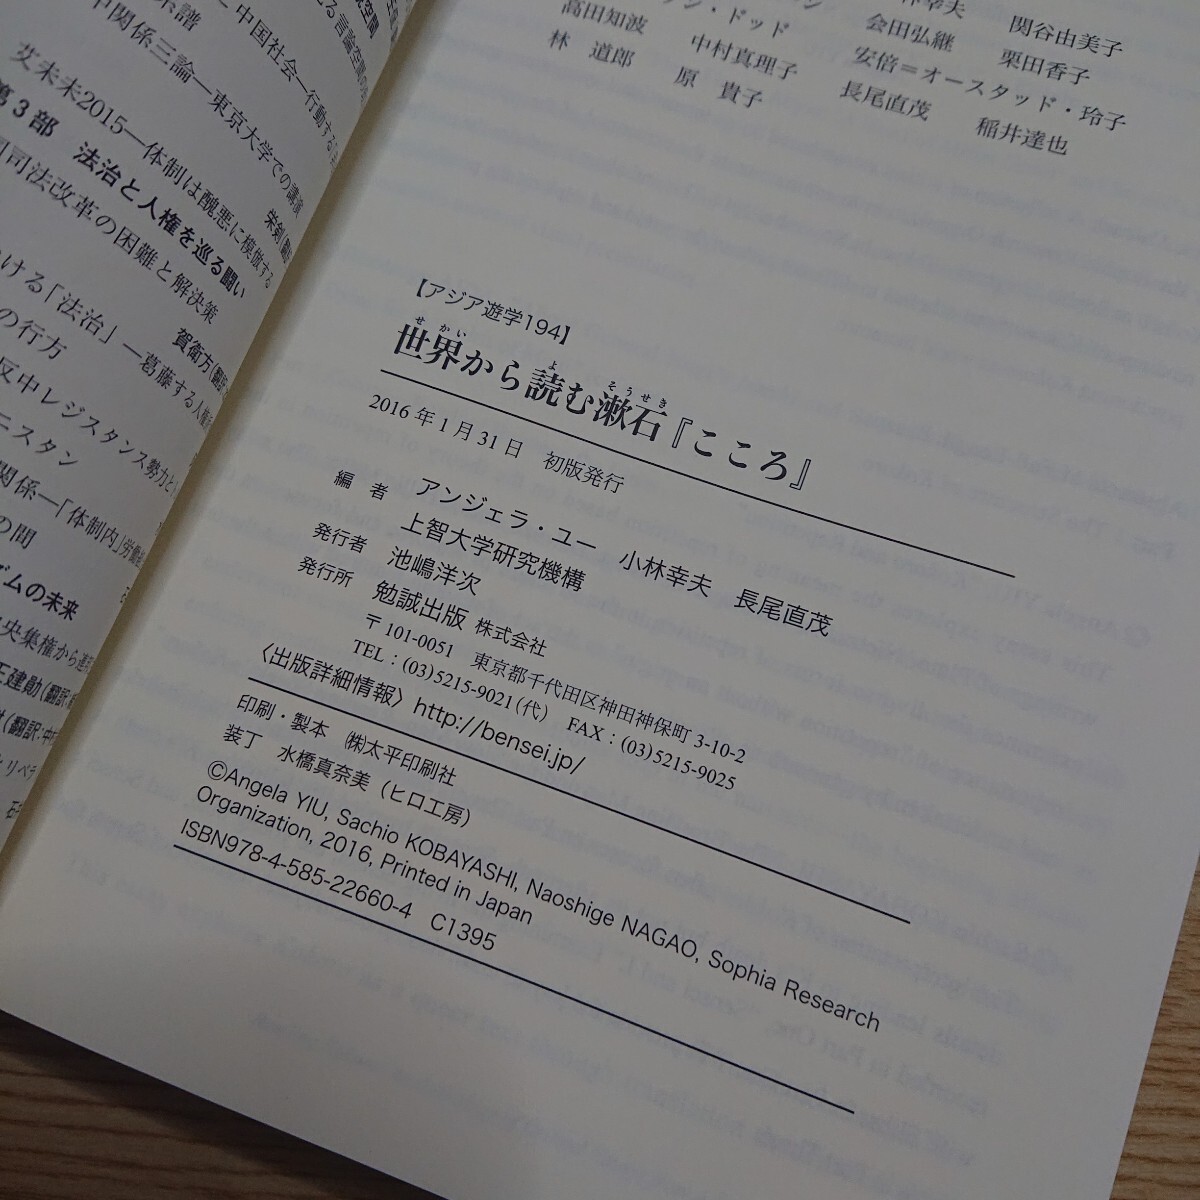 関谷由美子
会田弘継 栗田香子
ン・ドッド 安倍＝オースタッド・玲子
高田知波 中村真理子 長尾直茂 稲井達也
林 道郎 原 貴子
【アジア遊学194】
せかい よ そうせき
世界から読む漱石『こころ』
2016 年 1 月 31 日 初版発行
編 者 アンジェラ・ユー 小林幸夫 長尾直茂
上智大学研究機構
発行者 池嶋洋次
発行所 勉誠出版 株式会社
〒101-0051 東京都千代田区神田神保町 3-10-2
TEL：(03)5215-9021(代) FAX：(03)5215-9025
〈出版詳細情報〉http://bensei.jp/
印刷・製本 ㈱太平印刷社
装丁 水橋真奈美（ヒロ工房）
©Angela YIU, Sachio KOBAYASHI, Naoshige NAGAO, Sophia Research
Organization, 2016, Printed in Japan
ISBN978-4-585-22660-4 C1395
系譜
中国社会―行動する
中関係三論―東京大学での講演
艾未未2015―体制は醜悪に模倣する
第3部 法治と人権を巡る闘い
司法改革の困難と解決策
ける「法治」―葛藤する人権
賀衛方
の行方
反中レジスタンス勢力と
ニスタン
関係―「体制内」労働組
の間
ズムの未来
央集権から
王建勛（翻訳
（翻訳：中
リベラ